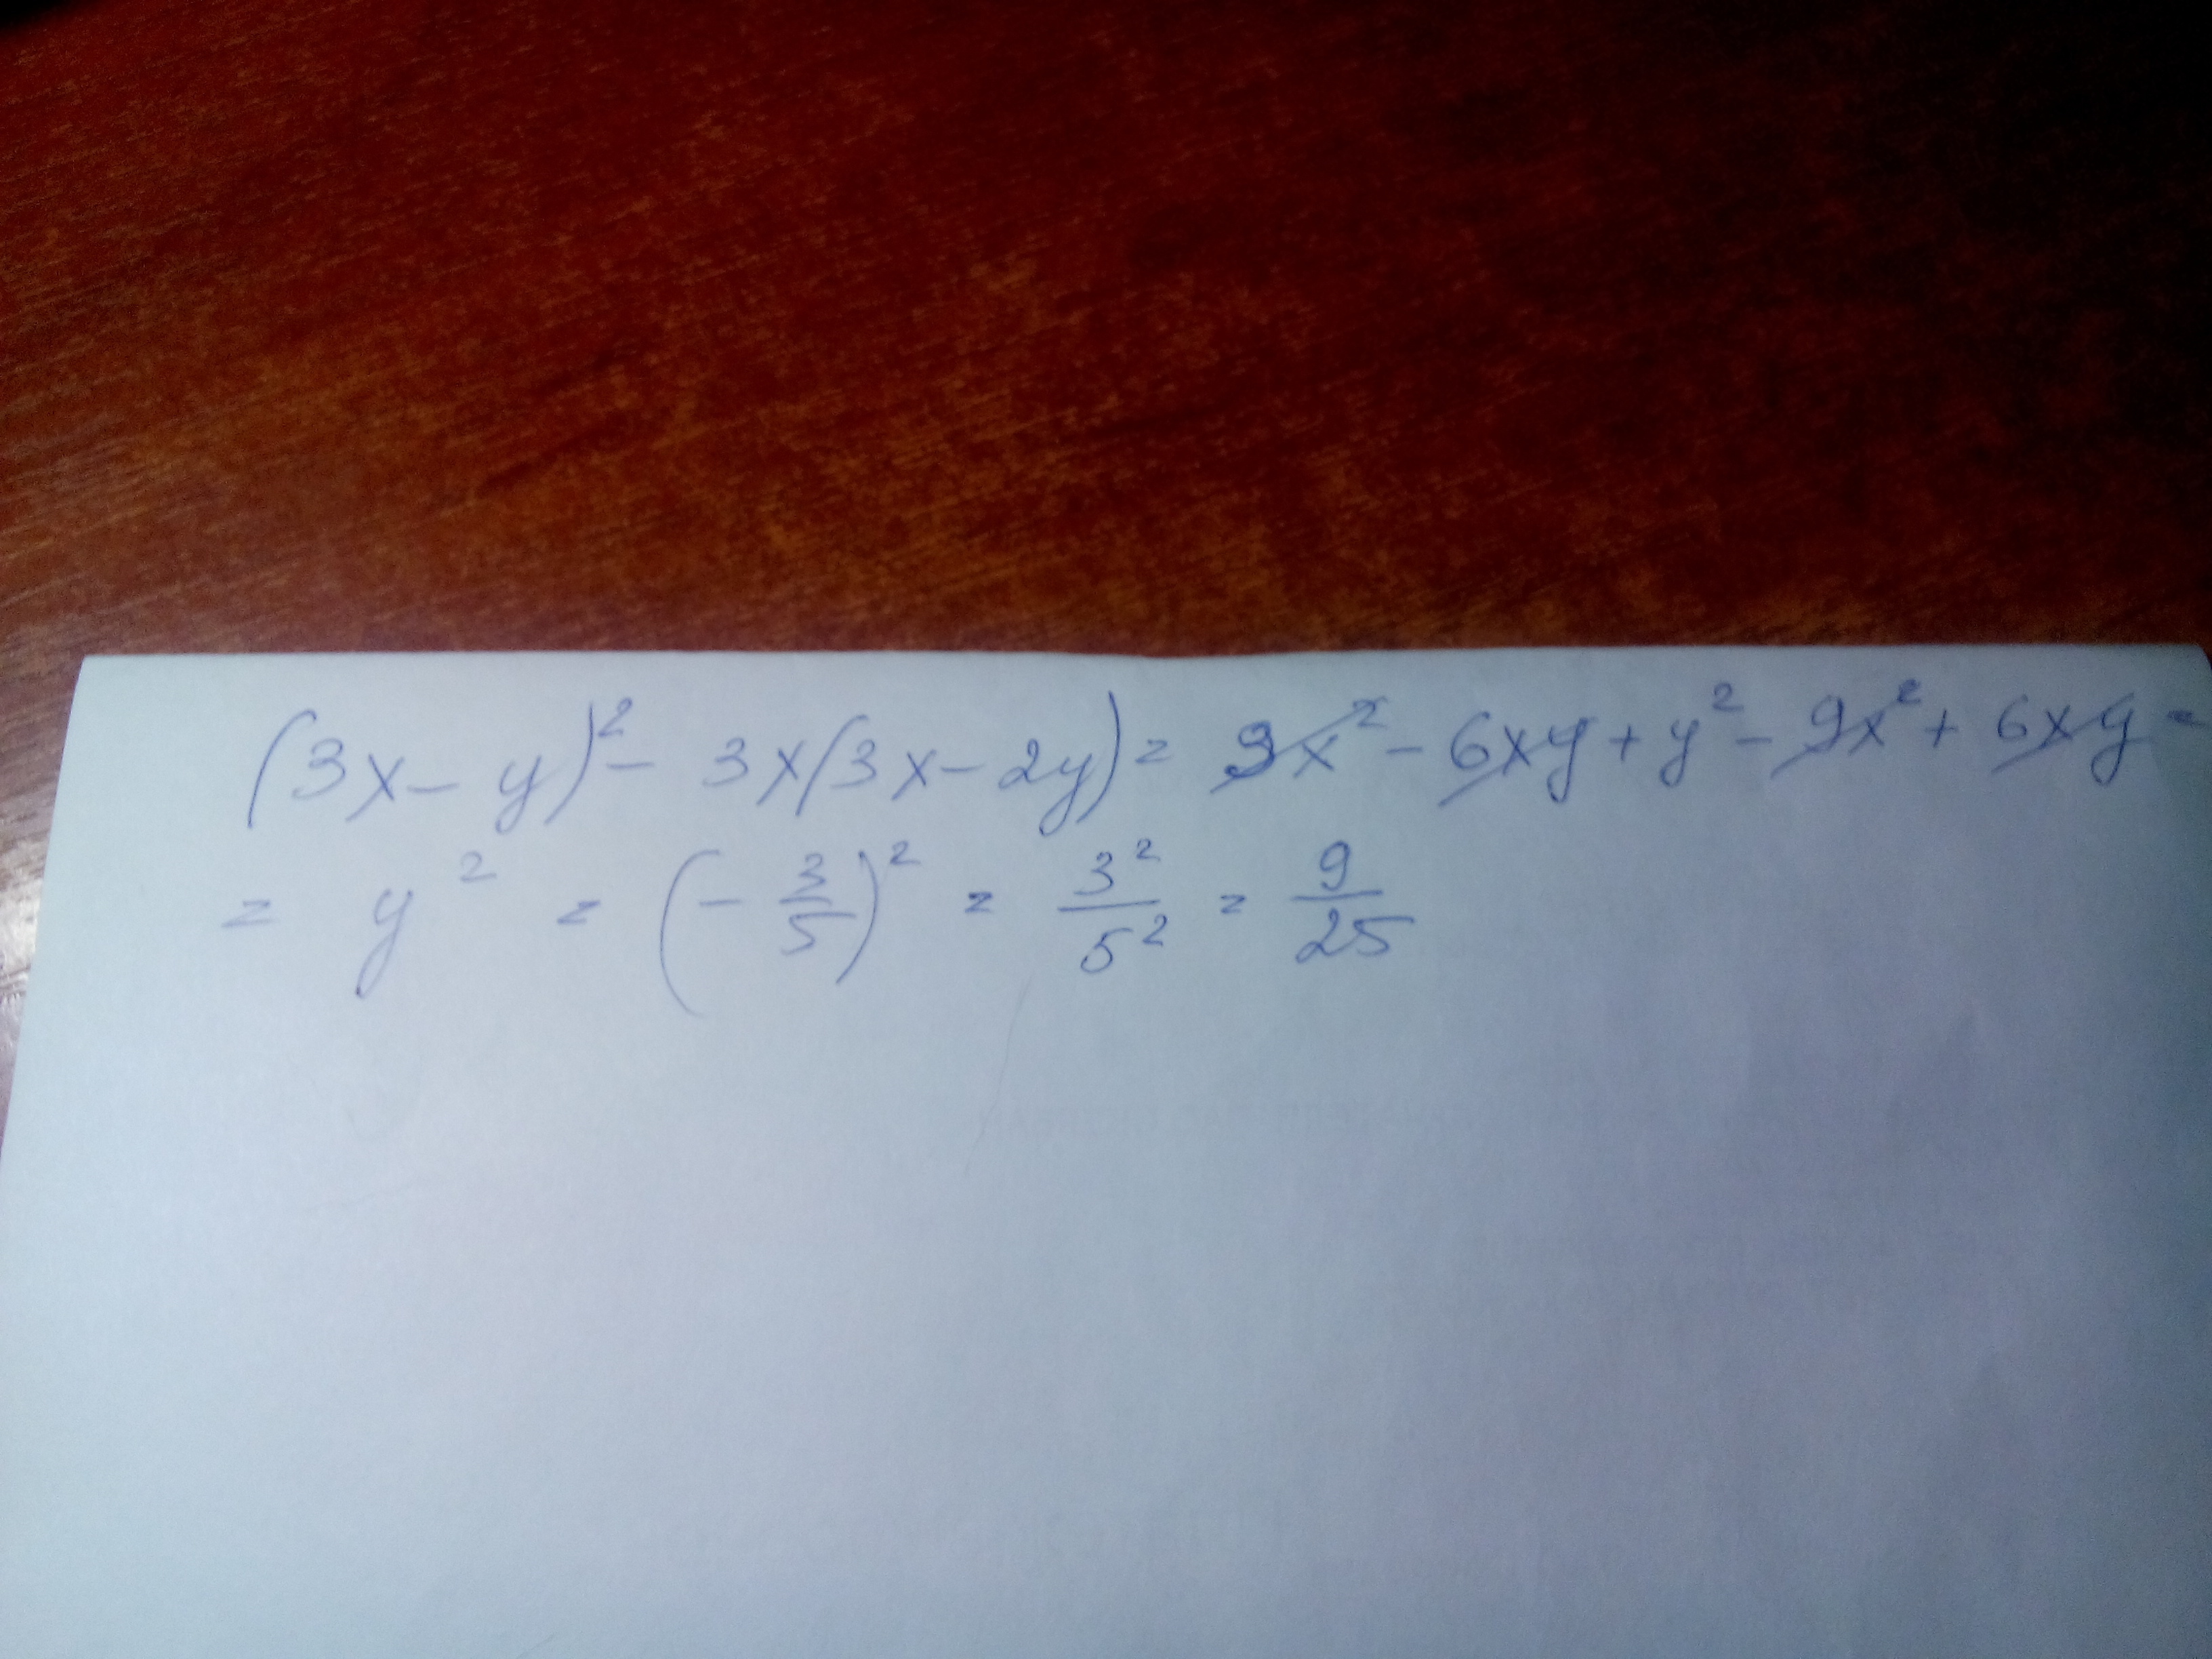 (3x - y)² - 3x(3x - 2y) = 9x² - 6xy + y² - 9x² + 6xy =
= y² = (-3/5)² = 3²/5² = 9/25